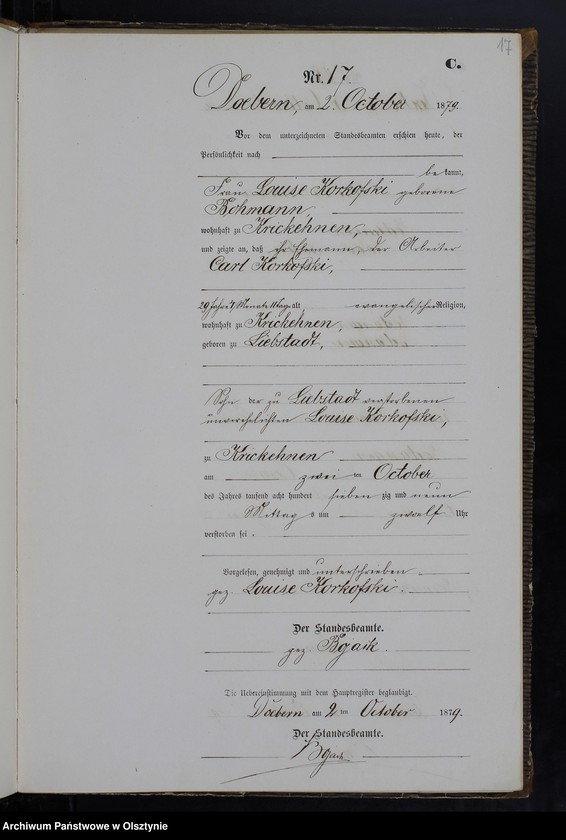 17
C.
Nr. 17.
Doebern, am 2. October 1879.
Vor dem unterzeichneten Standesbeamten erschien heute, der
Persönlichkeit nach
be kannt,
Frau Louise Korkofski geborene
Bohmann,
wohnhaft zu Krickehnen,
und zeigte an, daß ihr Ehemann, der Arbeiter
Carl Korkofski,
29 Jahre Monate Tage alt evangelischer Religion,
wohnhaft zu Krickehnen,
geboren zu Liebstadt,
Sohn der zu Liebstadt verstorbenen
unverehelichten Louise Korkofski,
zu Krickehnen
am zwei ten October
des Jahres tausend acht hundert sieben zig und neun
Mittag s um zwoelf Uhr
verstorben sei.
Vorgelesen, genehmigt und unterschrieben
gez. Louise Korkofski.
Der Standesbeamte.
gez. Bgaik.
Die Uebereinstimmung mit dem Hauptregister beglaubigt.
Doebern am 2 ten October 1879.
Der Standesbeamte.
Archiwum Państwowe w Olsztynie